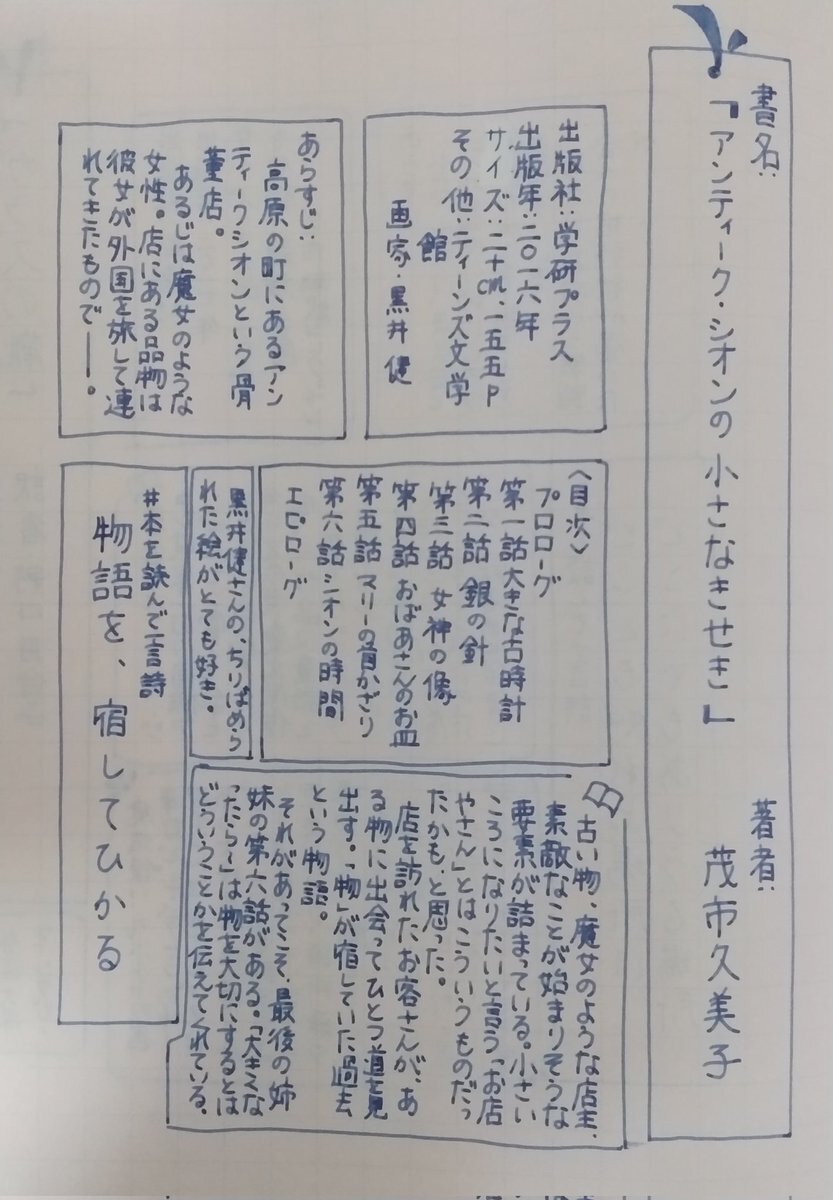 書名:
『アンティーク・シオンの小さなきせき』
著者:
茂市久美子
出版社:学研プラス
出版年:二〇一六年
サイズ:二十cm、一五五P
その他:ティーンズ文学
館
画家・黒井健
あらすじ:
高原の町にあるアン
ティークシオンという骨
董店。
あるじは魔女のような
女性。店にある品物は
彼女が外国を旅して連
れてきたもので――。
〈目次〉
プロローグ
第一話 大きな古時計
第二話 銀の針
第三話 女神の像
第四話 おばあさんのお皿
第五話 マリーの首かざり
第六話 シオンの時間
エピローグ
黒井健さんの、ちりばめら
れた絵がとても好き。
#本を読んで一言詩
物語を、宿してひかる
古い物、魔女のような店主、
素敵なことが始まりそうな
要素が詰まっている。小さい
ころになりたいと言う「お店
やさん」とはこういうものだっ
たかも、と思った。
店を訪れたお客さんが、あ
る物に出会ってひとつ道を見
出す。「物」が宿していた過去
という物語。
それがあってこそ、最後の姉
妹の第六話がある。「大きくな
ったら〜」は物を大切にするとは
どういうことかを伝えてくれている。